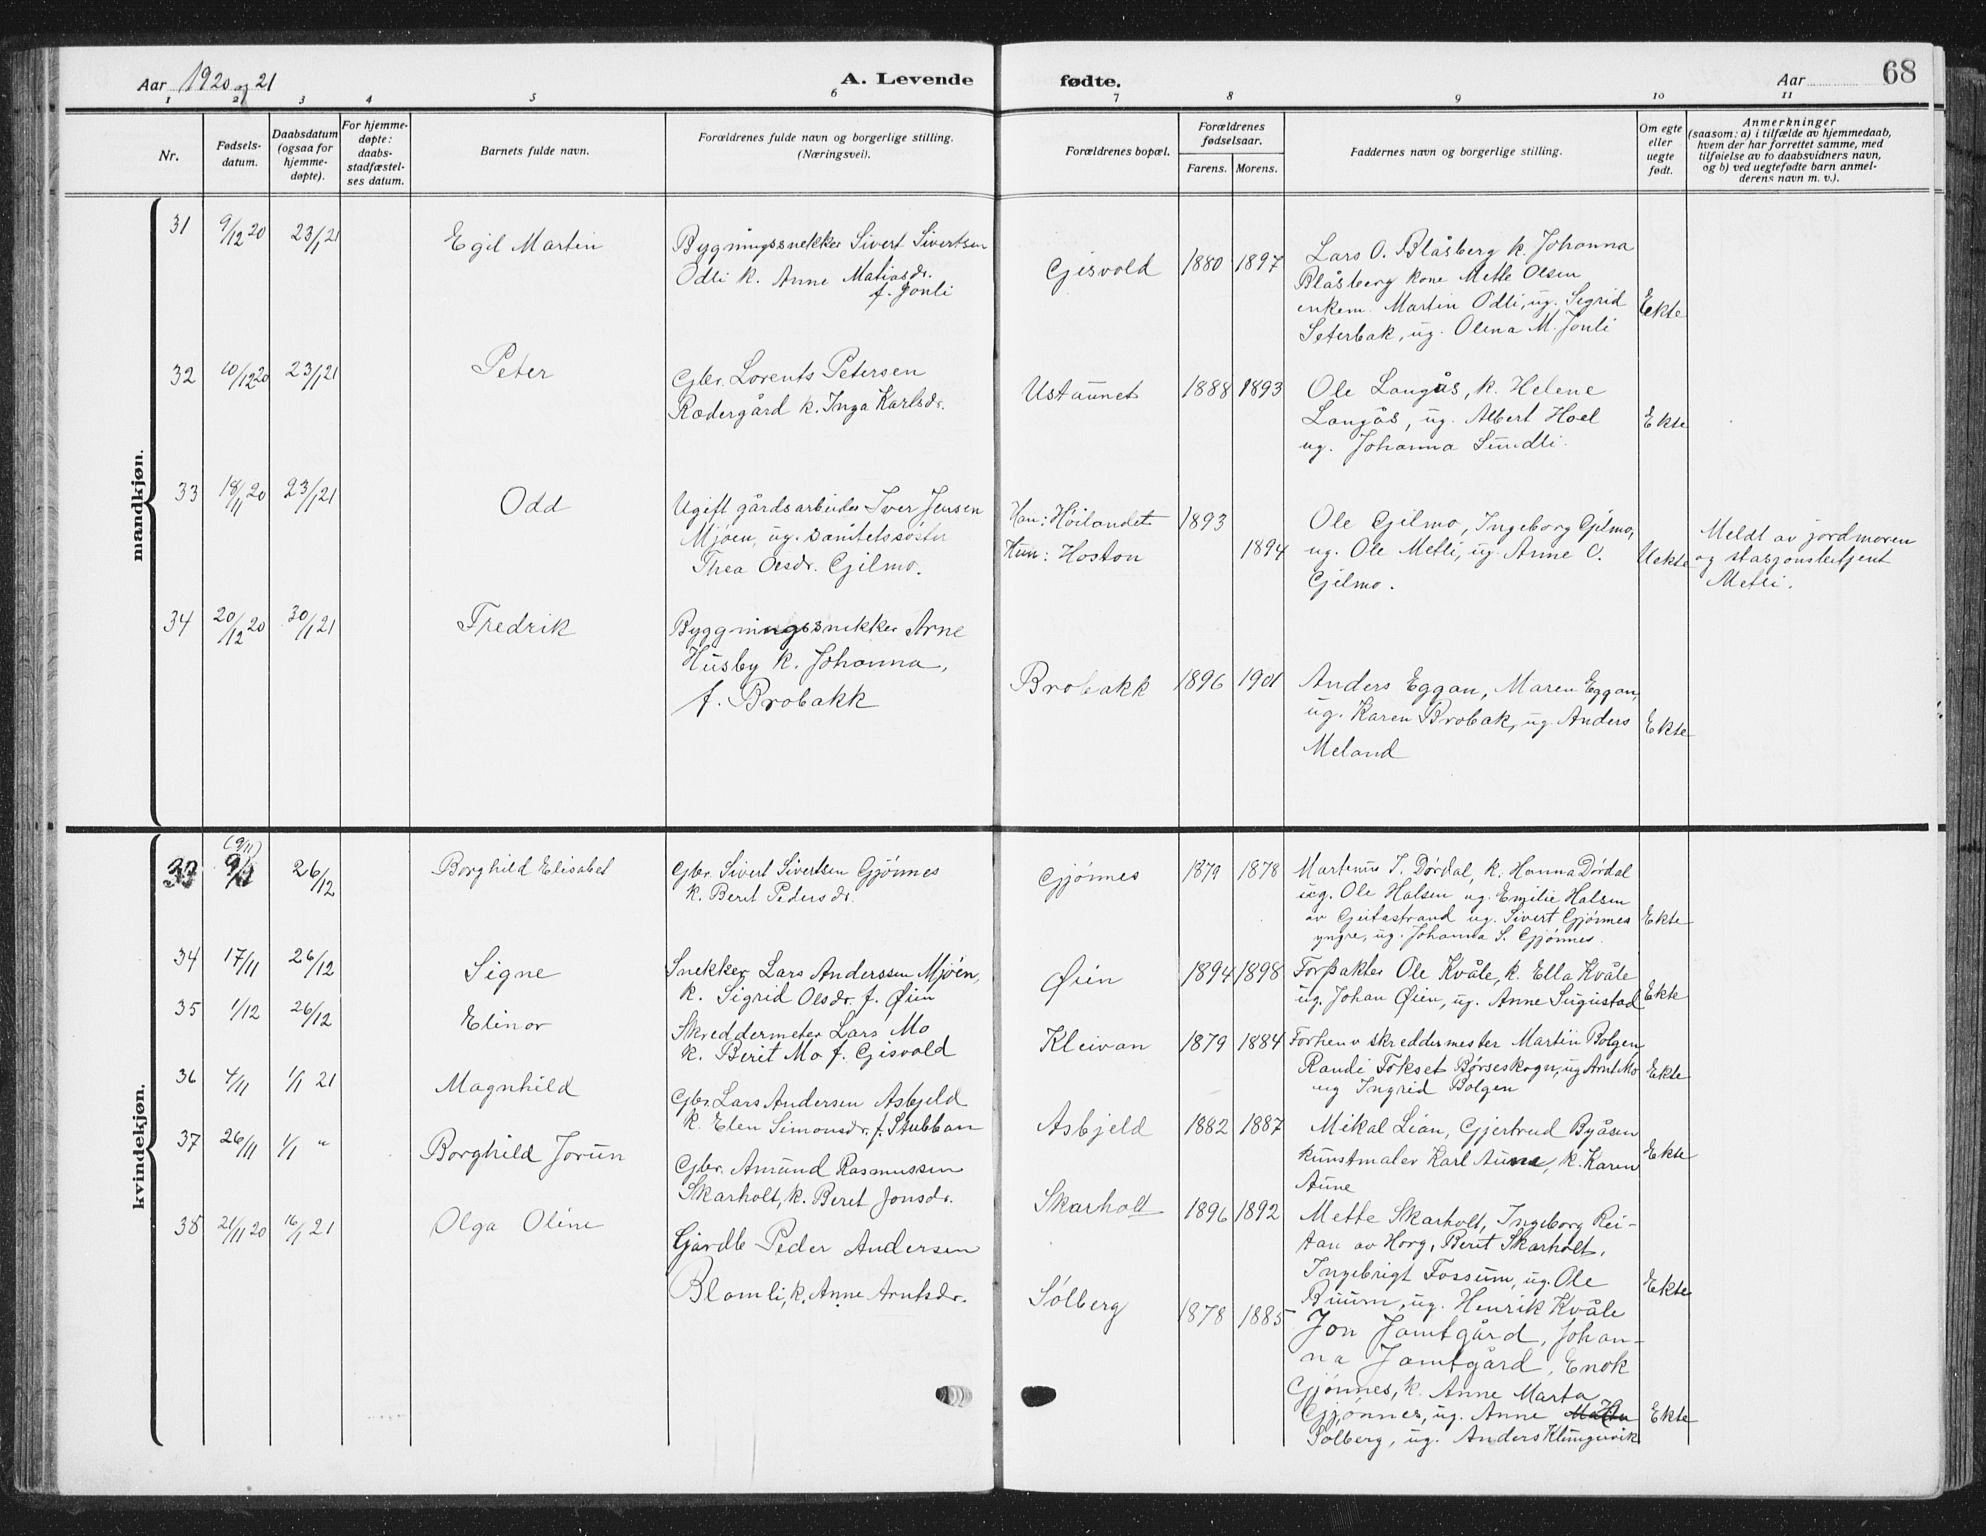 Aar 1920 og 21
A. Levende fødte.
Aar
68
1 2 3 4 5 6 7 8 9 10 11
Nr.
Fødsels-
datum.
Daabsdatum
(ogsaa for
hjemme-
døpte).
For hjemme-
døpte:
daabs-
stadfæstel-
ses datum.
Barnets fulde navn.
Forældrenes fulde navn og borgerlige stilling.
(Næringsvei).
Forældrenes bopæl.
Forældrenes
fødselsaar.
Farens. Morens.
Faddernes navn og borgerlige stilling.
Om egte
eller
uegte
født.
Anmerkninger
(saasom: a) i tilfælde av hjemmedaab,
hvem der har forrettet samme, med
tilføielse av to daabsvidners navn,
og b) ved uegtefødte barn anmel-
derens navn m. v.).
mandkjøn.
31 9/12 20 23/1 21 Egil Martin
Bygningssnekker Sivert Sivertsen
Odli k. Anne Matiasdr.
f. Jonli
Gisvold 1880 1897
Lars O. Blåsberg k. Johanna
Blåsberg kone Mette Olsen
enkem. Martin Odli, ug. Sigrid
Seterbak, ug. Olina M. Jonli
Ekte
32 10/12 20 23/1 21 Peter
Gbr. Lorents Petersen
Rædergård k. Inga Karlsdr.
Ustaunet 1888 1893
Ole Langås, k. Helene
Langås, ug. Albert Hoel
ug. Johanna Sundli.
Ekte
33 18/11 20 23/1 21 Odd
Ugift gårdsarbeider Iver Jensen
Mjøen, ug. sanitetssøster
Thea Olsdr. Gjilmo.
Han: Høilandet 1893
Hun: Hoston 1894
Ole Gjilmo, Ingeborg Gjilmo,
ug. Ole Metli, ug. Anne O.
Gjilmo.
Uekte
Meldt av jordmoren
og stasjonsbetjent
Metli.
34 20/12 20 30/1 21 Fredrik
Byggningssnikker Arne
Husby k. Johanna,
f. Brobakk
Brobakk 1896 1901
Anders Eggan, Maren Eggan,
ug. Karen Brobak, ug. Anders
Meland
Ekte
kvindekjøn.
(9/11)
33 26/12 Borghild Elisabet
Gbr. Sivert Sivertsen Gjønnes
k. Berit Pedersdr.
Gjønnes 1879 1878
Martinus I. Dørdal, k. Hanna Dørdal
ug. Ole Halsen ug. Emilie Halsen
av Geitastrand ug. Sivert Gjønnes
yngre, ug. Johanna S. Gjønnes.
Ekte
34 17/11 26/12 Signe
Snekker Lars Anderssen Mjøen,
k. Sigrid Olsdr. f. Øien
Øien 1894 1898
Forpakter Ole Kvåle, k. Ella Kvåle
ug. Johan Øien, ug. Anne Sugustad
Ekte
35 1/12 26/12 Elinor
Skreddermeter Lars Mo
k. Berit Mo f. Gisvold
Kleivan 1879 1884
Forhenv skreddermester Martin Bolgen
Randi Fokset Børseskogn, ug Arnt Mo
ug Ingrid Bolgen
Ekte
36 4/11 1/1 21 Magnhild
Gbr. Lars Andersen Asbjeld
k. Elen Simonsdr. f. Stubban
Asbjeld 1882 1887
Mikal Lian, Gjertrud Byåsen
kunstmaler Karl Aune, k. Karen
Aune
Ekte
37 26/11 1/1 " Borghild Jorun
Gbr. Amund Rasmussen
Skarholt, k. Beret Jonsdr.
Skarholt 1896 1892
Mette Skarholt, Ingeborg Rei-
tan av Horg, Berit Skarholt,
Ingebrigt Fossum, ug. Ole
Buum, ug. Henrik Kvåle
Ekte
38 21/11 20 16/1 21 Olga Oline
Gårdb Peder Andersen
Blomli, k. Anne Arntsdr.
Solberg 1878 1885
Jon Jamtgård, Johan-
na Jamtgård, Enok
Gjønnes, k. Anne Marta
Gjønnes, ug. Anne
Solberg, ug. Anders Klungervik
Ekte